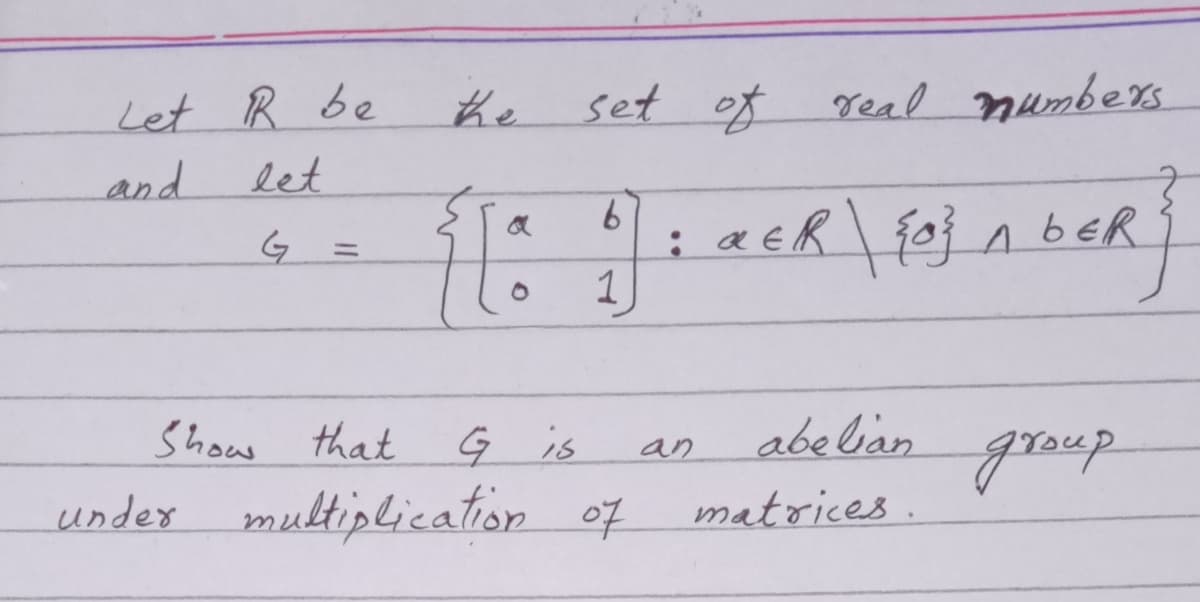 Let ℝ be the set of real numbers
and let
G = { [ a b ; 0 1 ] : a ∈ ℝ \ {0} ∧ b ∈ ℝ }
Show that G is an abelian group
under multiplication of matrices.